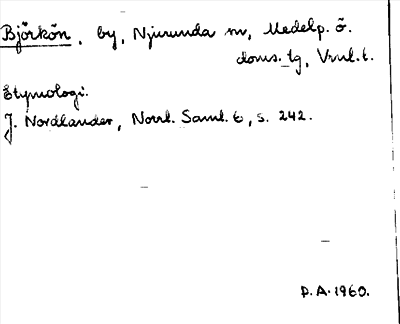 Björkön, by, Njurunda sn, Medelp. ö.
doms.tg, Vnl. l.
Etymologi.
J. Nordlander, Norrl. Saml. 6, s. 242.
P.A. 1960.